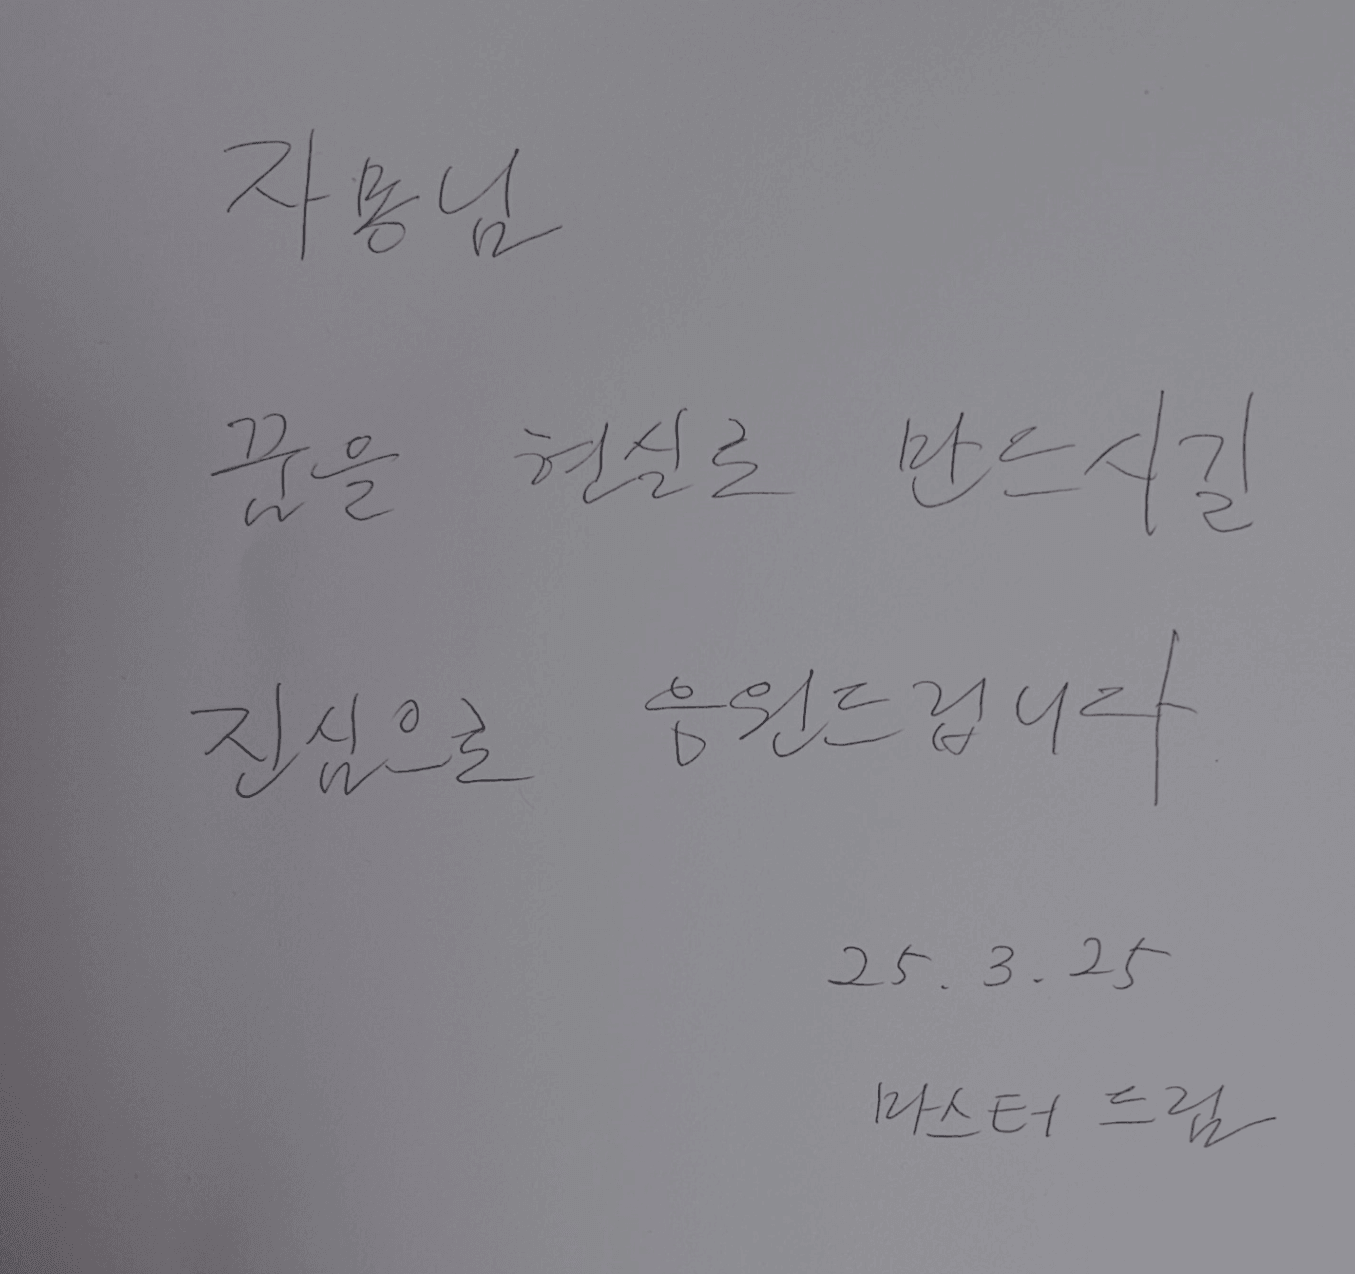 자몽님
꿈을 현실로 만드시길
진심으로 응원드립니다
25. 3. 25
마스터 드림